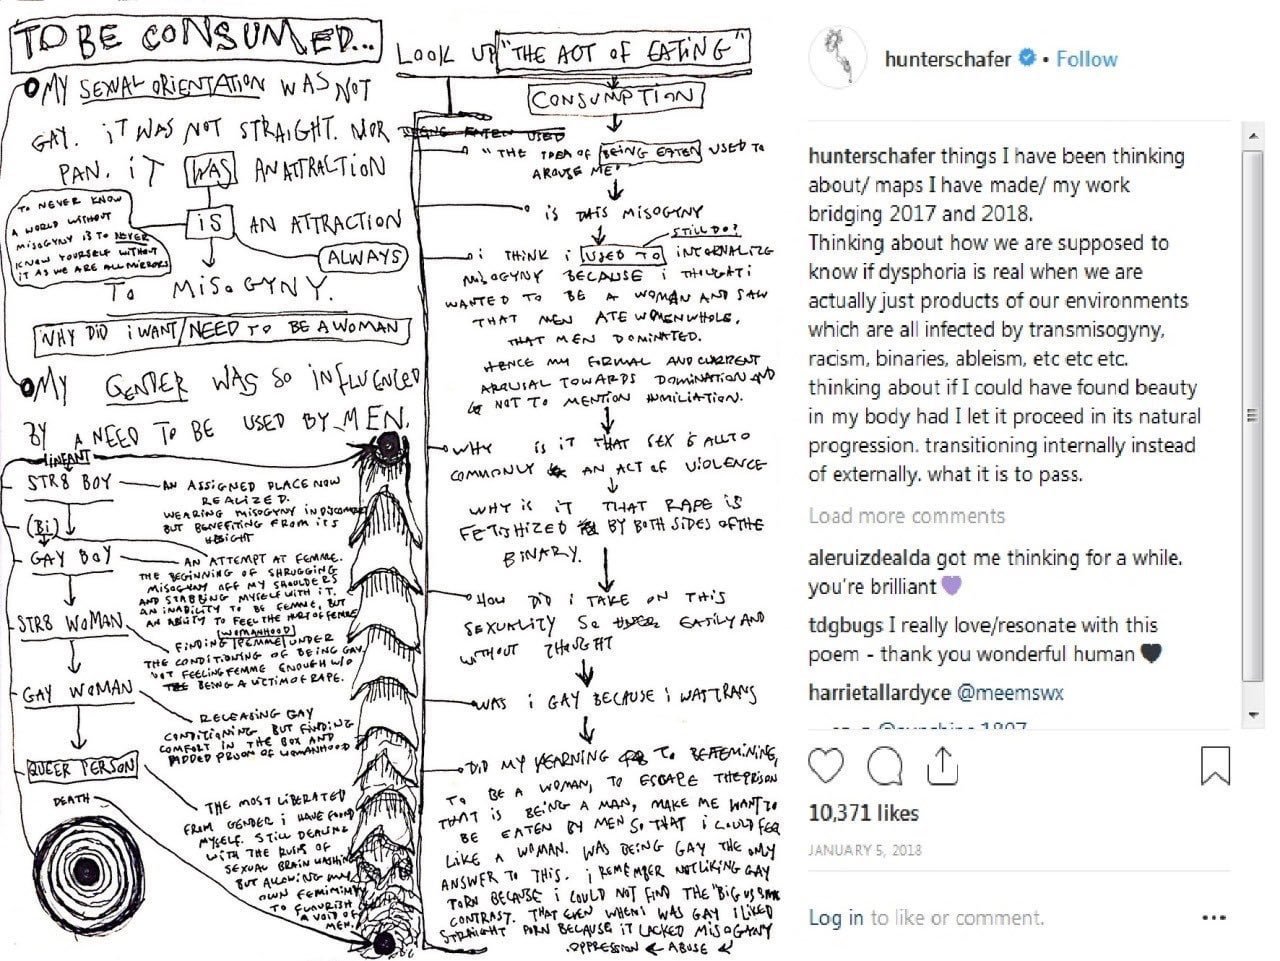 TO BE CONSUMED...
MY SEXUAL ORIENTATION WAS NOT
GAY. IT WAS NOT STRAIGHT. NOR
PAN. IT WAS AN ATTRACTION
IS AN ATTRACTION
ALWAYS
TO MISOGYNY.
TO NEVER KNOW
A WORLD WITHOUT
MISOGYNY IS TO NEVER
KNOW YOURSELF WITHOUT
IT AS WE ARE ALL MIRRORS
WHY DID I WANT/NEED TO BE A WOMAN
MY GENDER WAS SO INFLUENCED
BY A NEED TO BE USED BY MEN.
INFANT
STR8 BOY
AN ASSIGNED PLACE NOW
REALIZED.
WEARING MISOGYNY IN DISCOMFORT
BUT BENEFITING FROM ITS
HEIGHT
(Bi)
GAY BOY
AN ATTEMPT AT FEMME.
THE BEGINNING OF SHRUGGING
MISOGYNY OFF MY SHOULDERS
AND STABBING MYSELF WITH IT.
AN INABILITY TO BE FEMME, BUT
AN ABILITY TO FEEL THE HURT OF FEMME
STR8 WOMAN
WOMANHOOD
FINDING FEMME UNDER
THE CONDITIONING OF BEING GAY
NOT FEELING FEMME ENOUGH W/O
BEING A VICTIM OF RAPE.
GAY WOMAN
RELEASING GAY
CONDITIONING BUT FINDING
COMFORT IN THE BOX AND
ADDED PROOF OF WOMANHOOD
QUEER PERSON
THE MOST LIBERATED
FROM GENDER I HAVE FOUND
MYSELF. STILL DEALING
WITH THE RUINS OF
SEXUAL BRAIN WASHING
BUT ALLOWING MY
OWN FEMININITY
TO FLOURISH
A VOID OF
MEN.
DEATH
LOOK UP "THE ACT OF EATING"
CONSUMPTION
BEING EATEN USED
"THE IDEA OF BEING EATEN USED TO
AROUSE ME"
IS THIS MISOGYNY
STILL DO?
I THINK I USED TO INTERNALIZE
MISOGYNY BECAUSE I THOUGHT I
WANTED TO BE A WOMAN AND SAW
THAT MEN ATE WOMEN WHOLE.
THAT MEN DOMINATED.
HENCE MY FORMAL AND CURRENT
AROUSAL TOWARDS DOMINATION AND
NOT TO MENTION HUMILIATION.
WHY IS IT THAT SEX IS ALL TO
COMMONLY AN ACT OF VIOLENCE
WHY IS IT THAT RAPE IS
FETISHIZED BY BOTH SIDES OF THE
BINARY.
HOW DID I TAKE ON THIS
SEXUALITY SO EASILY AND
WITHOUT THOUGHT
WAS I GAY BECAUSE I WAS TRANS
DID MY YEARNING TO BE FEMININE,
TO BE A WOMAN, TO ESCAPE THE PRISON
THAT IS BEING A MAN, MAKE ME WANT TO
BE EATEN BY MEN SO THAT I COULD FEEL
LIKE A WOMAN. WAS BEING GAY THE ONLY
ANSWER TO THIS. I REMEMBER NOT LIKING GAY
PORN BECAUSE I COULD NOT FIND THE "BIG VS SMALL
CONTRAST. THAT EVEN WHEN I WAS GAY I LIKED
STRAIGHT PORN BECAUSE IT LACKED MISOGYNY
OPPRESSION ← ABUSE
hunterschafer • Follow
hunterschafer things I have been thinking
about/ maps I have made/ my work
bridging 2017 and 2018.
Thinking about how we are supposed to
know if dysphoria is real when we are
actually just products of our environments
which are all infected by transmisogyny,
racism, binaries, ableism, etc etc etc.
thinking about if I could have found beauty
in my body had I let it proceed in its natural
progression. transitioning internally instead
of externally. what it is to pass.
Load more comments
aleruizdealda got me thinking for a while.
you're brilliant 💜
tdgbugs I really love/resonate with this
poem - thank you wonderful human 🖤
harrietallardyce @meemswx
10,371 likes
JANUARY 5, 2018
Log in to like or comment.